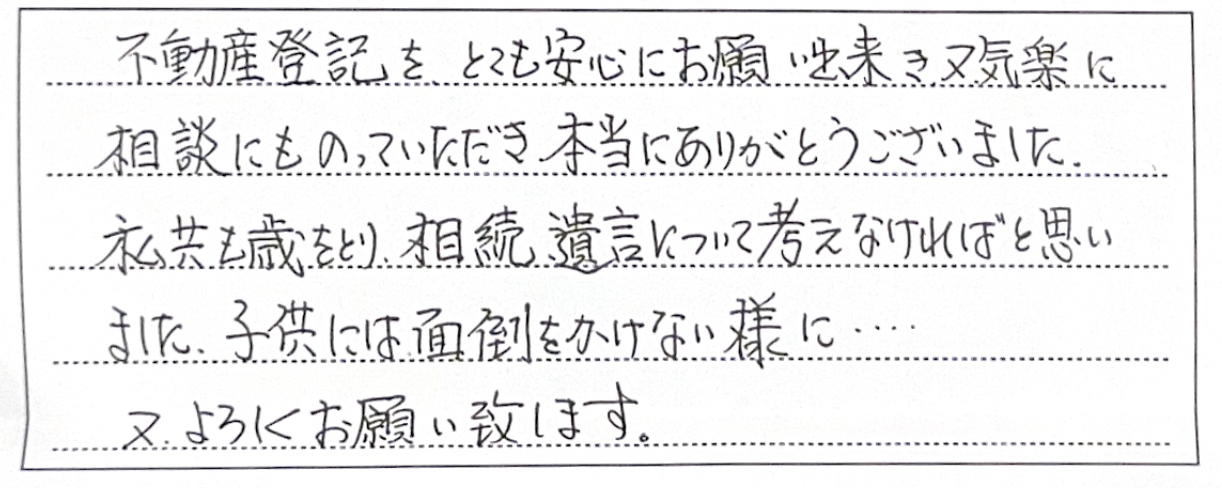 不動産登記を とても安心にお願い出来き又気楽に
相談にものっていただき、本当にありがとうございました。
私共も歳をとり、相続、遺言について考えなければと思い
ました。子供には面倒をかけない様に‥‥
又、よろしくお願い致します。